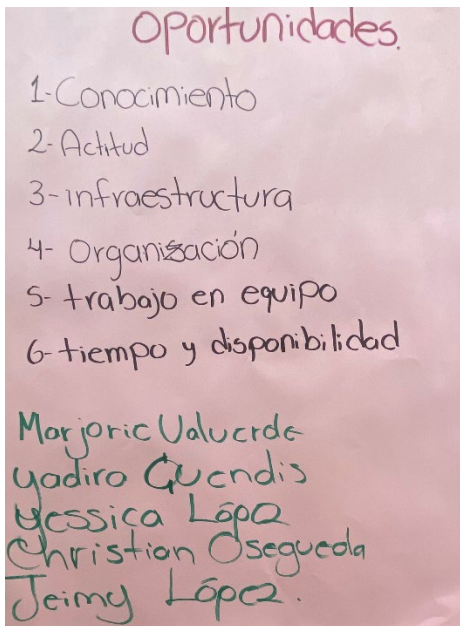 Oportunidades.
1-Conocimiento
2-Actitud
3-infraestructura
4-Organización
5-trabajo en equipo
6-tiempo y disponibilidad
Marjorie Valverde
Yadira Guendis
Yessica López
Christian Osegueda
Jeimy López.